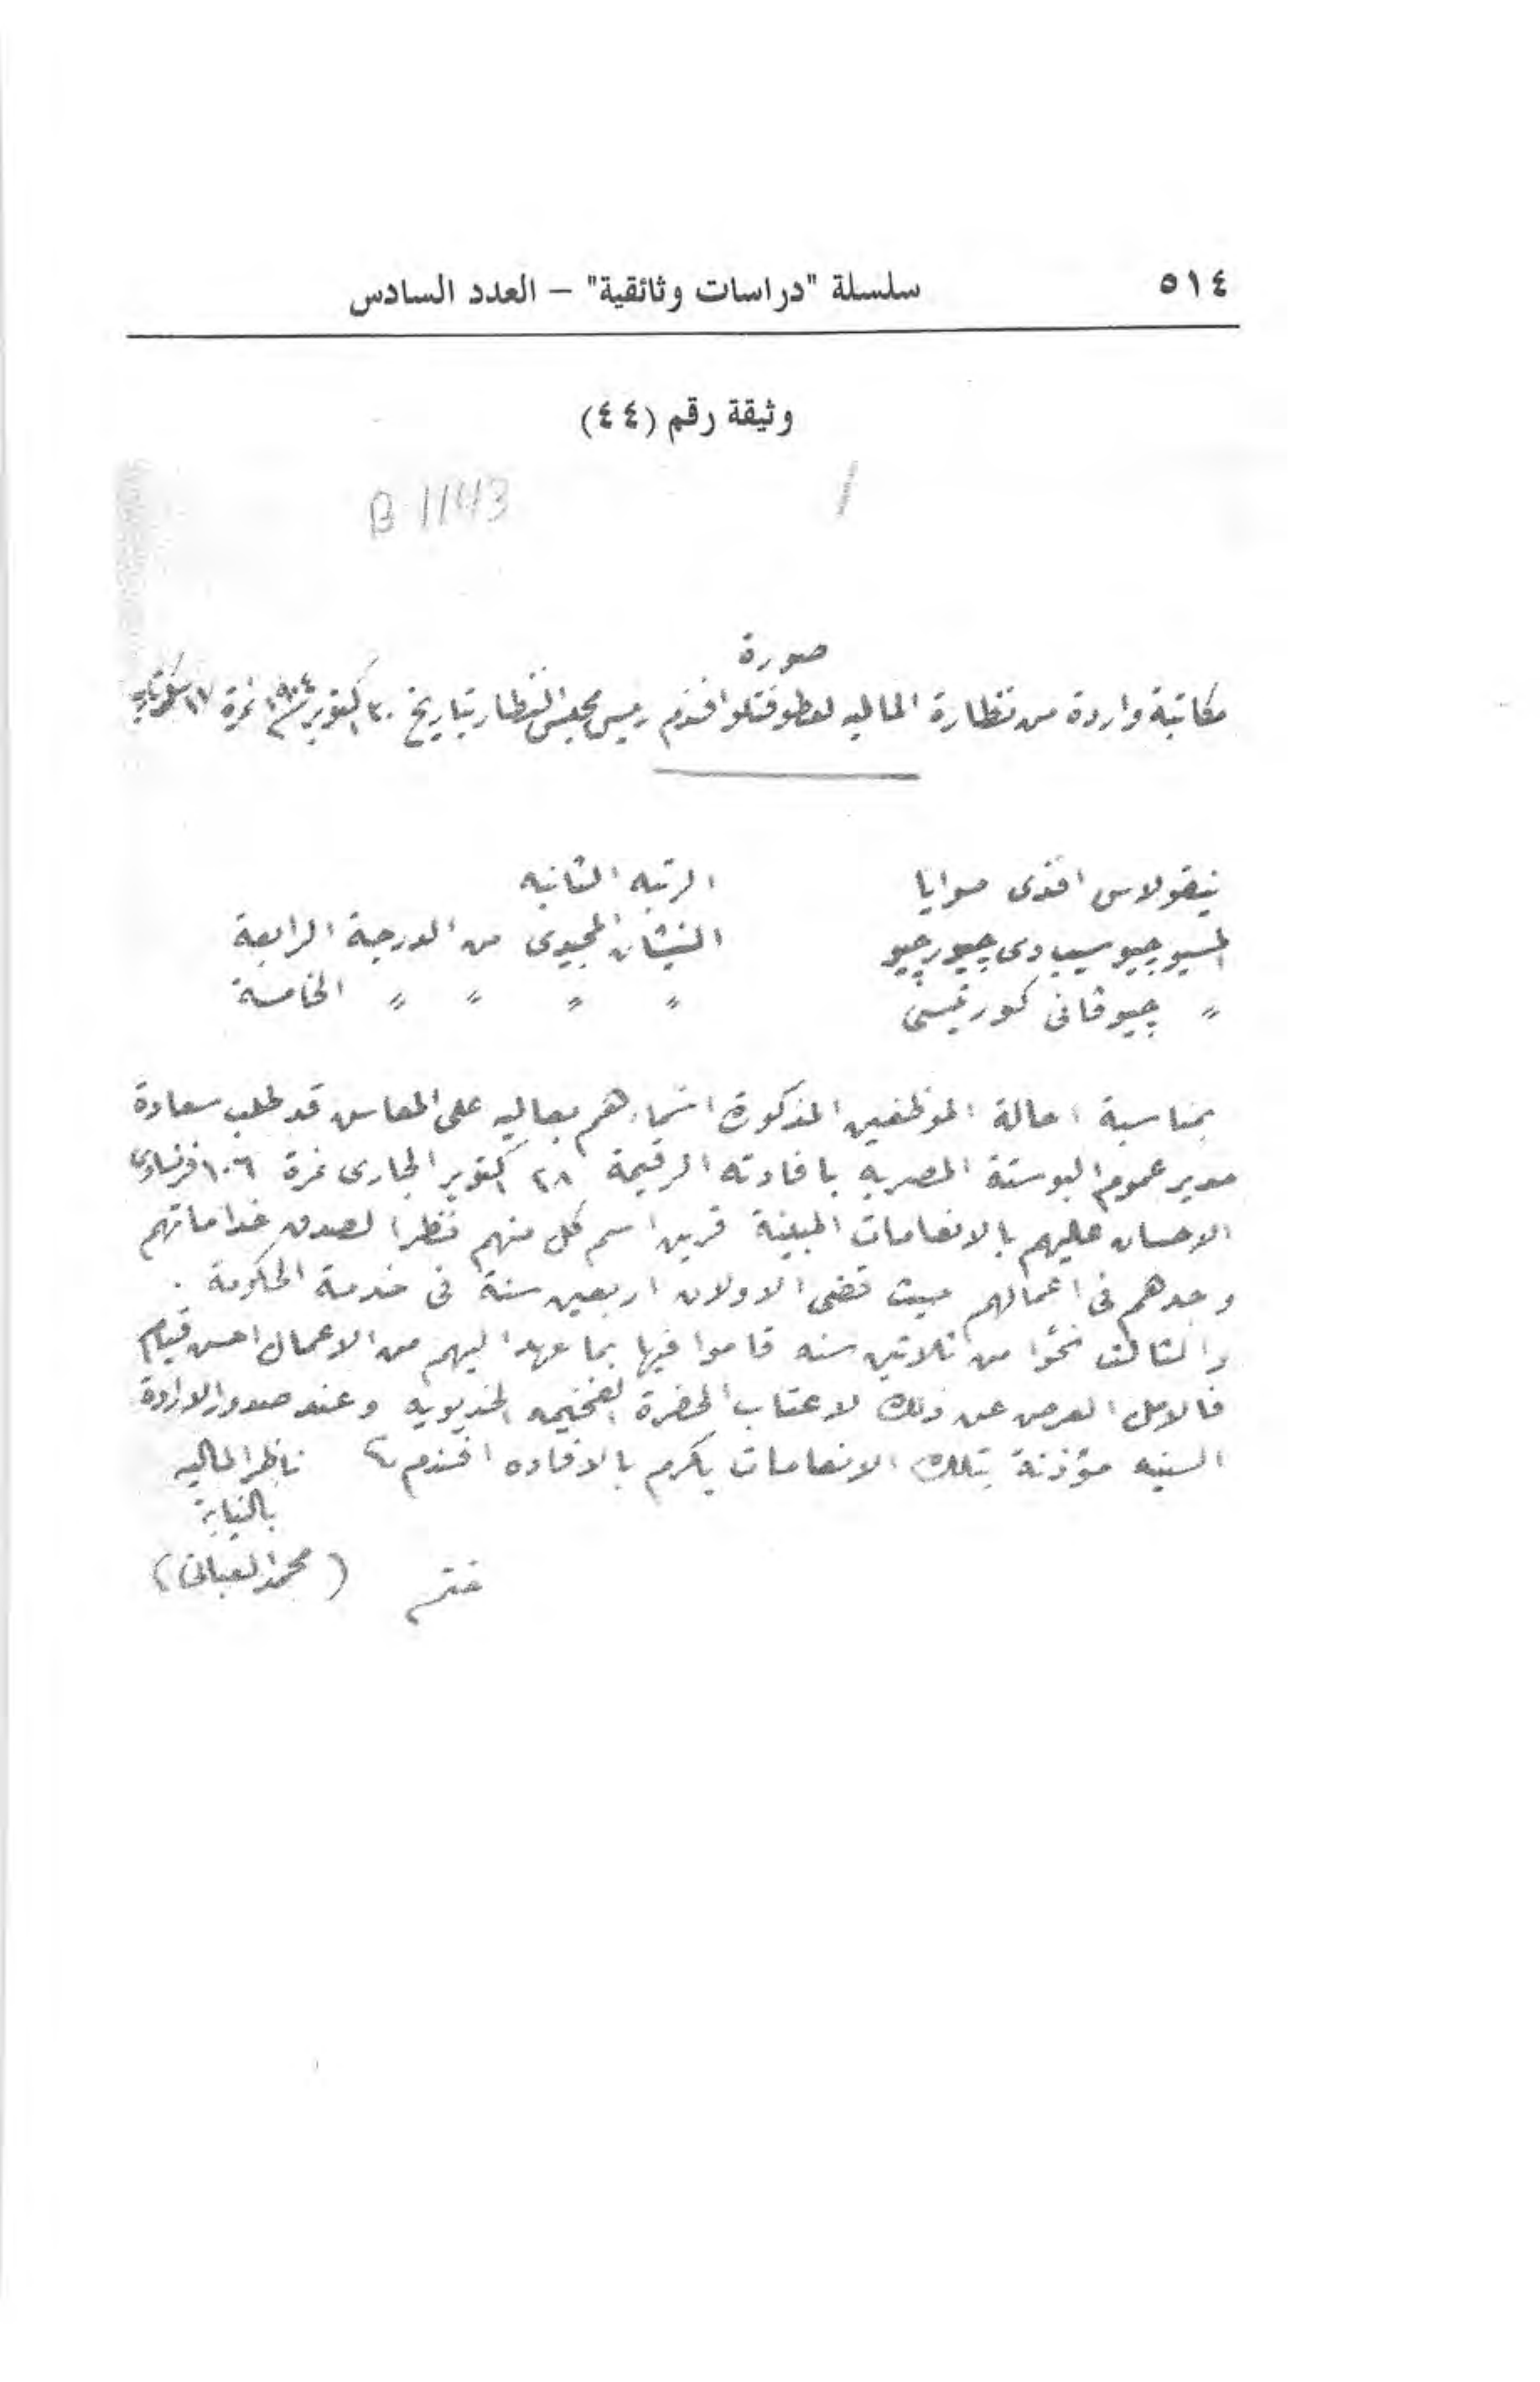 ٥١٤
سلسلة "دراسات وثائقية" – العدد السادس
وثيقة رقم (٤٤)
B 1143
صورة
مكاتبة واردة من نظارة الماليه لعطوفتلو افندم رئيس مجلس النظار بتاريخ ٣٠ اكتوبر سنة ١٩٠٤ نمرة
نيقولاس افندى صوايا الرتبه الثانيه
المسيو جيو سيبا دى چيورچيو النيشان المجيدى من الدرجة الرابعة
" چيوڤانى كورتيسى " " " " الخامسة
بمناسبة احالة الموظفين المذكورة اسماءهم بعاليه على المعاش قد طلب سعادة
مدير عموم البوستة المصريه بافادته الرقيمة ٢٨ اكتوبر الجارى نمرة ١٠٦ فرنساوى
الاحسان عليهم بالانعامات المبينة قرين اسم كل منهم نظرا لصدق خداماتهم
وجدهم فى اعمالهم حيث قضى الاولان اربعين سنة فى خدمة الحكومة .
والثالث نحوا من ثلاثين سنه قاموا فيها بما عهد اليهم من الاعمال احسن قيام
فالامل العرض عن ذلك لاعتاب الحضرة الفخيمه الخديويه وعند صدور الارادة
السنيه مؤذنة بتلك الانعامات يكرم بالافاده افندم ناظر الماليه
بالنيابة
ختم (محمد العبانى)